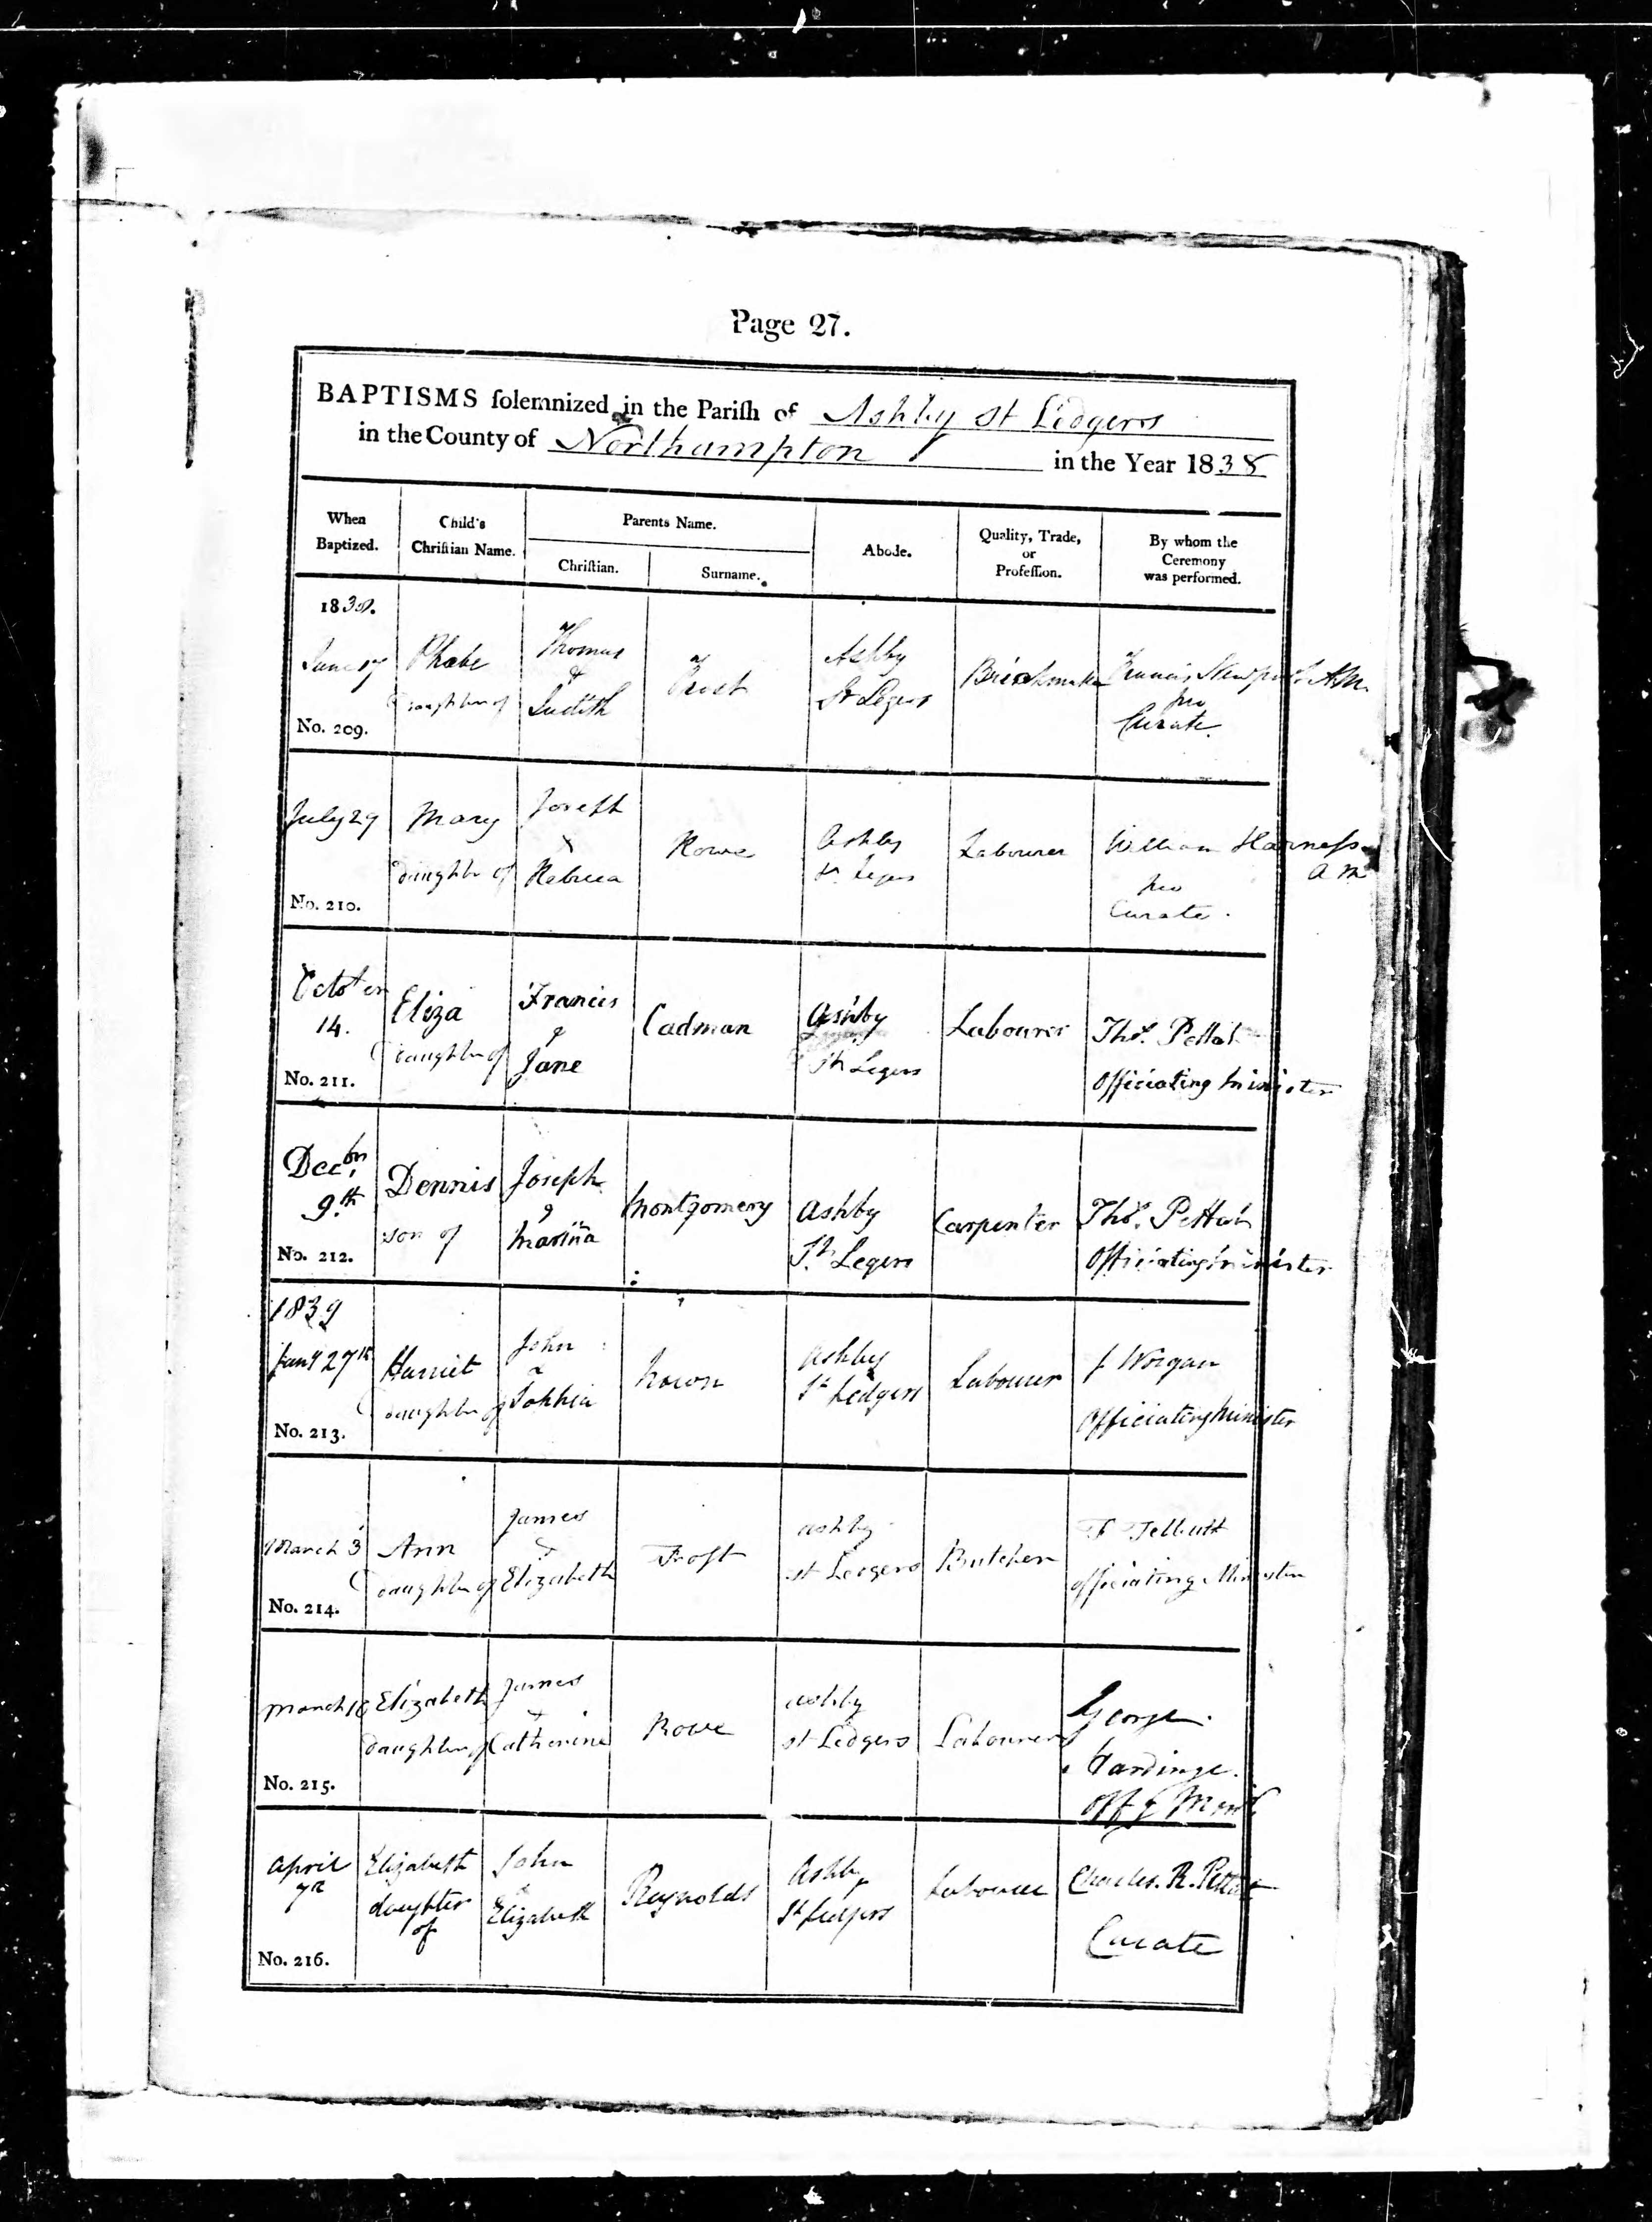 Page 27.
BAPTISMS solemnized in the Parish of Ashby St Ledgers
in the County of Northampton in the Year 1838
When Baptized. Child's Christian Name. Parents Name. Abode. Quality, Trade, or Profession. By whom the Ceremony was performed.
Christian. Surname.
1838.
June 17 Phœbe Thomas Frost Ashby Brickmaker Francis A.M.
Daughter of & Judith St Legers pro
No. 209. Curate.
July 29 Mary Joseph Rowe Ashby Labourer William Harness
daughter of & Rebecca St Legers pro A M
No. 210. Curate.
October Eliza Francis Cadman Ashby Labourer Thos. Pettat
14. Daughter of & Jane St Legers Officiating Minister
No. 211.
Decbr. Dennis Joseph Montgomery Ashby Carpenter Thos. Pettat
9.th son of & St. Legers Officiating Minister
No. 212.
1839
Jany 27th Harriet John Ashby Labourer J Worgan
daughter of & Sophia St Ledgers Officiating Minister
No. 213.
March 3 Ann James Frost Ashby Butcher Tebbutt
daughter of & Elizabeth st Ledgers officiating Minister
No. 214.
March Elizabeth James Rowe Ashby Labourer George
daughter of & Catherine st Ledgers Hardinge.
No. 215. Offg Minr
April Elizabeth John Reynolds Ashby Labourer Charles. R. Pettat
7th daughter & Elizabeth St Ledgers
of Curate
No. 216.